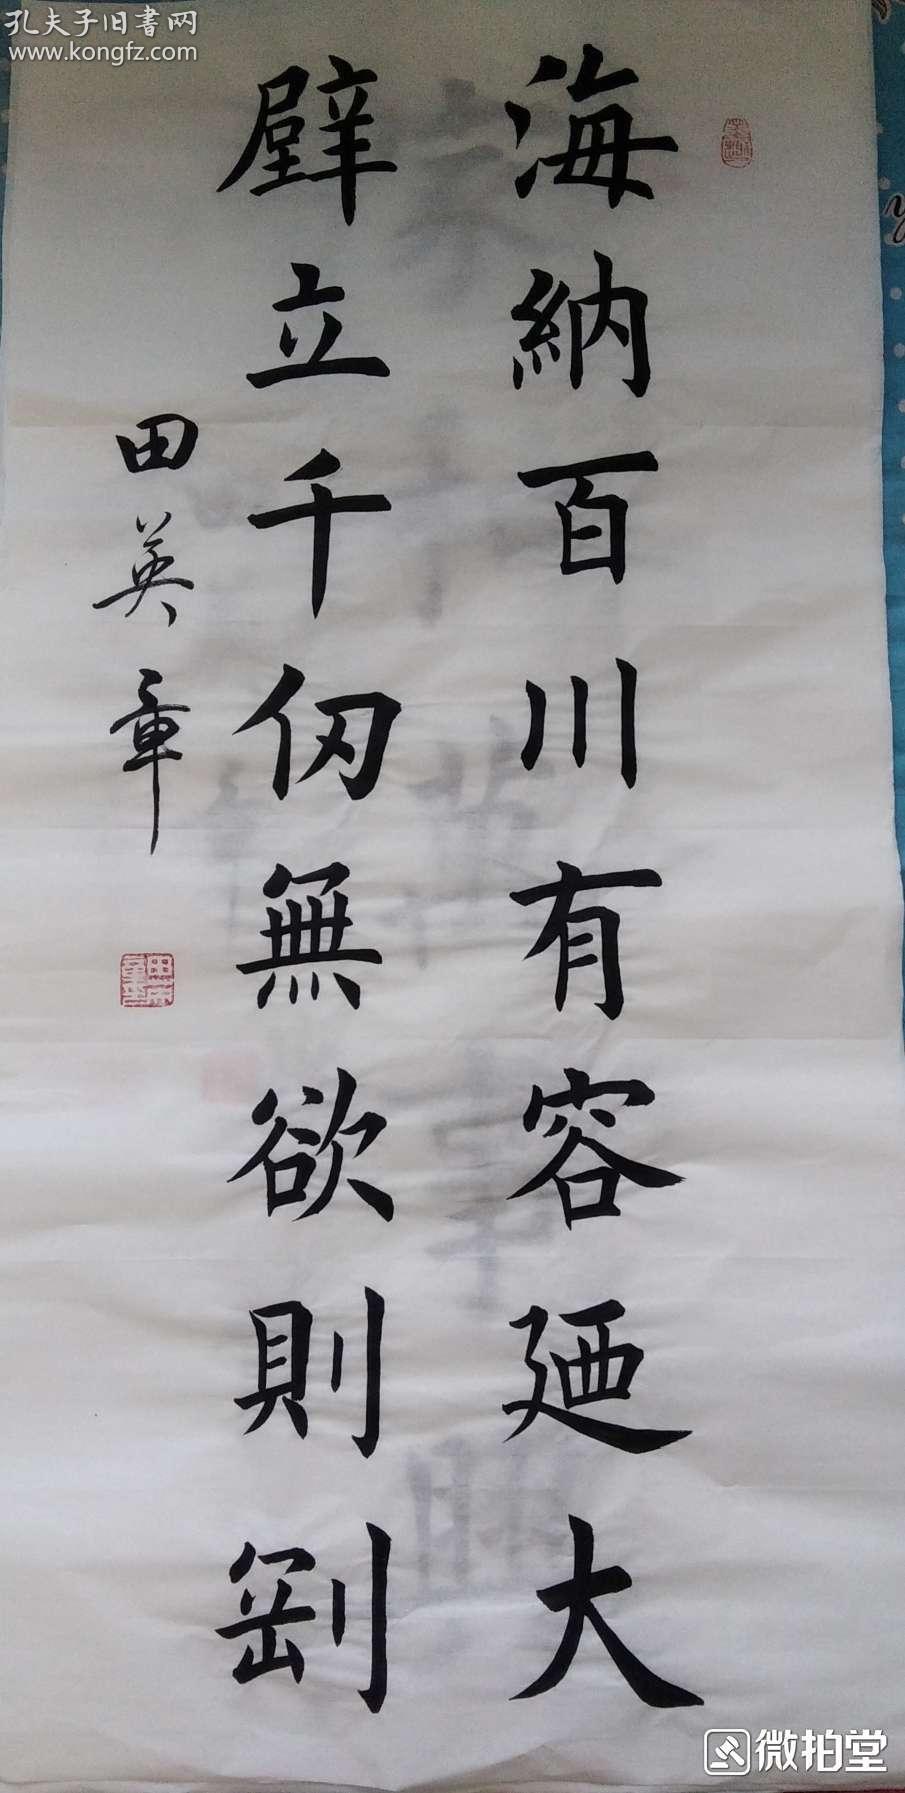 孔夫子旧書网
www.kongfz.com
海納百川有容廼大
壁立千仞無欲則剛
田英章
微拍堂